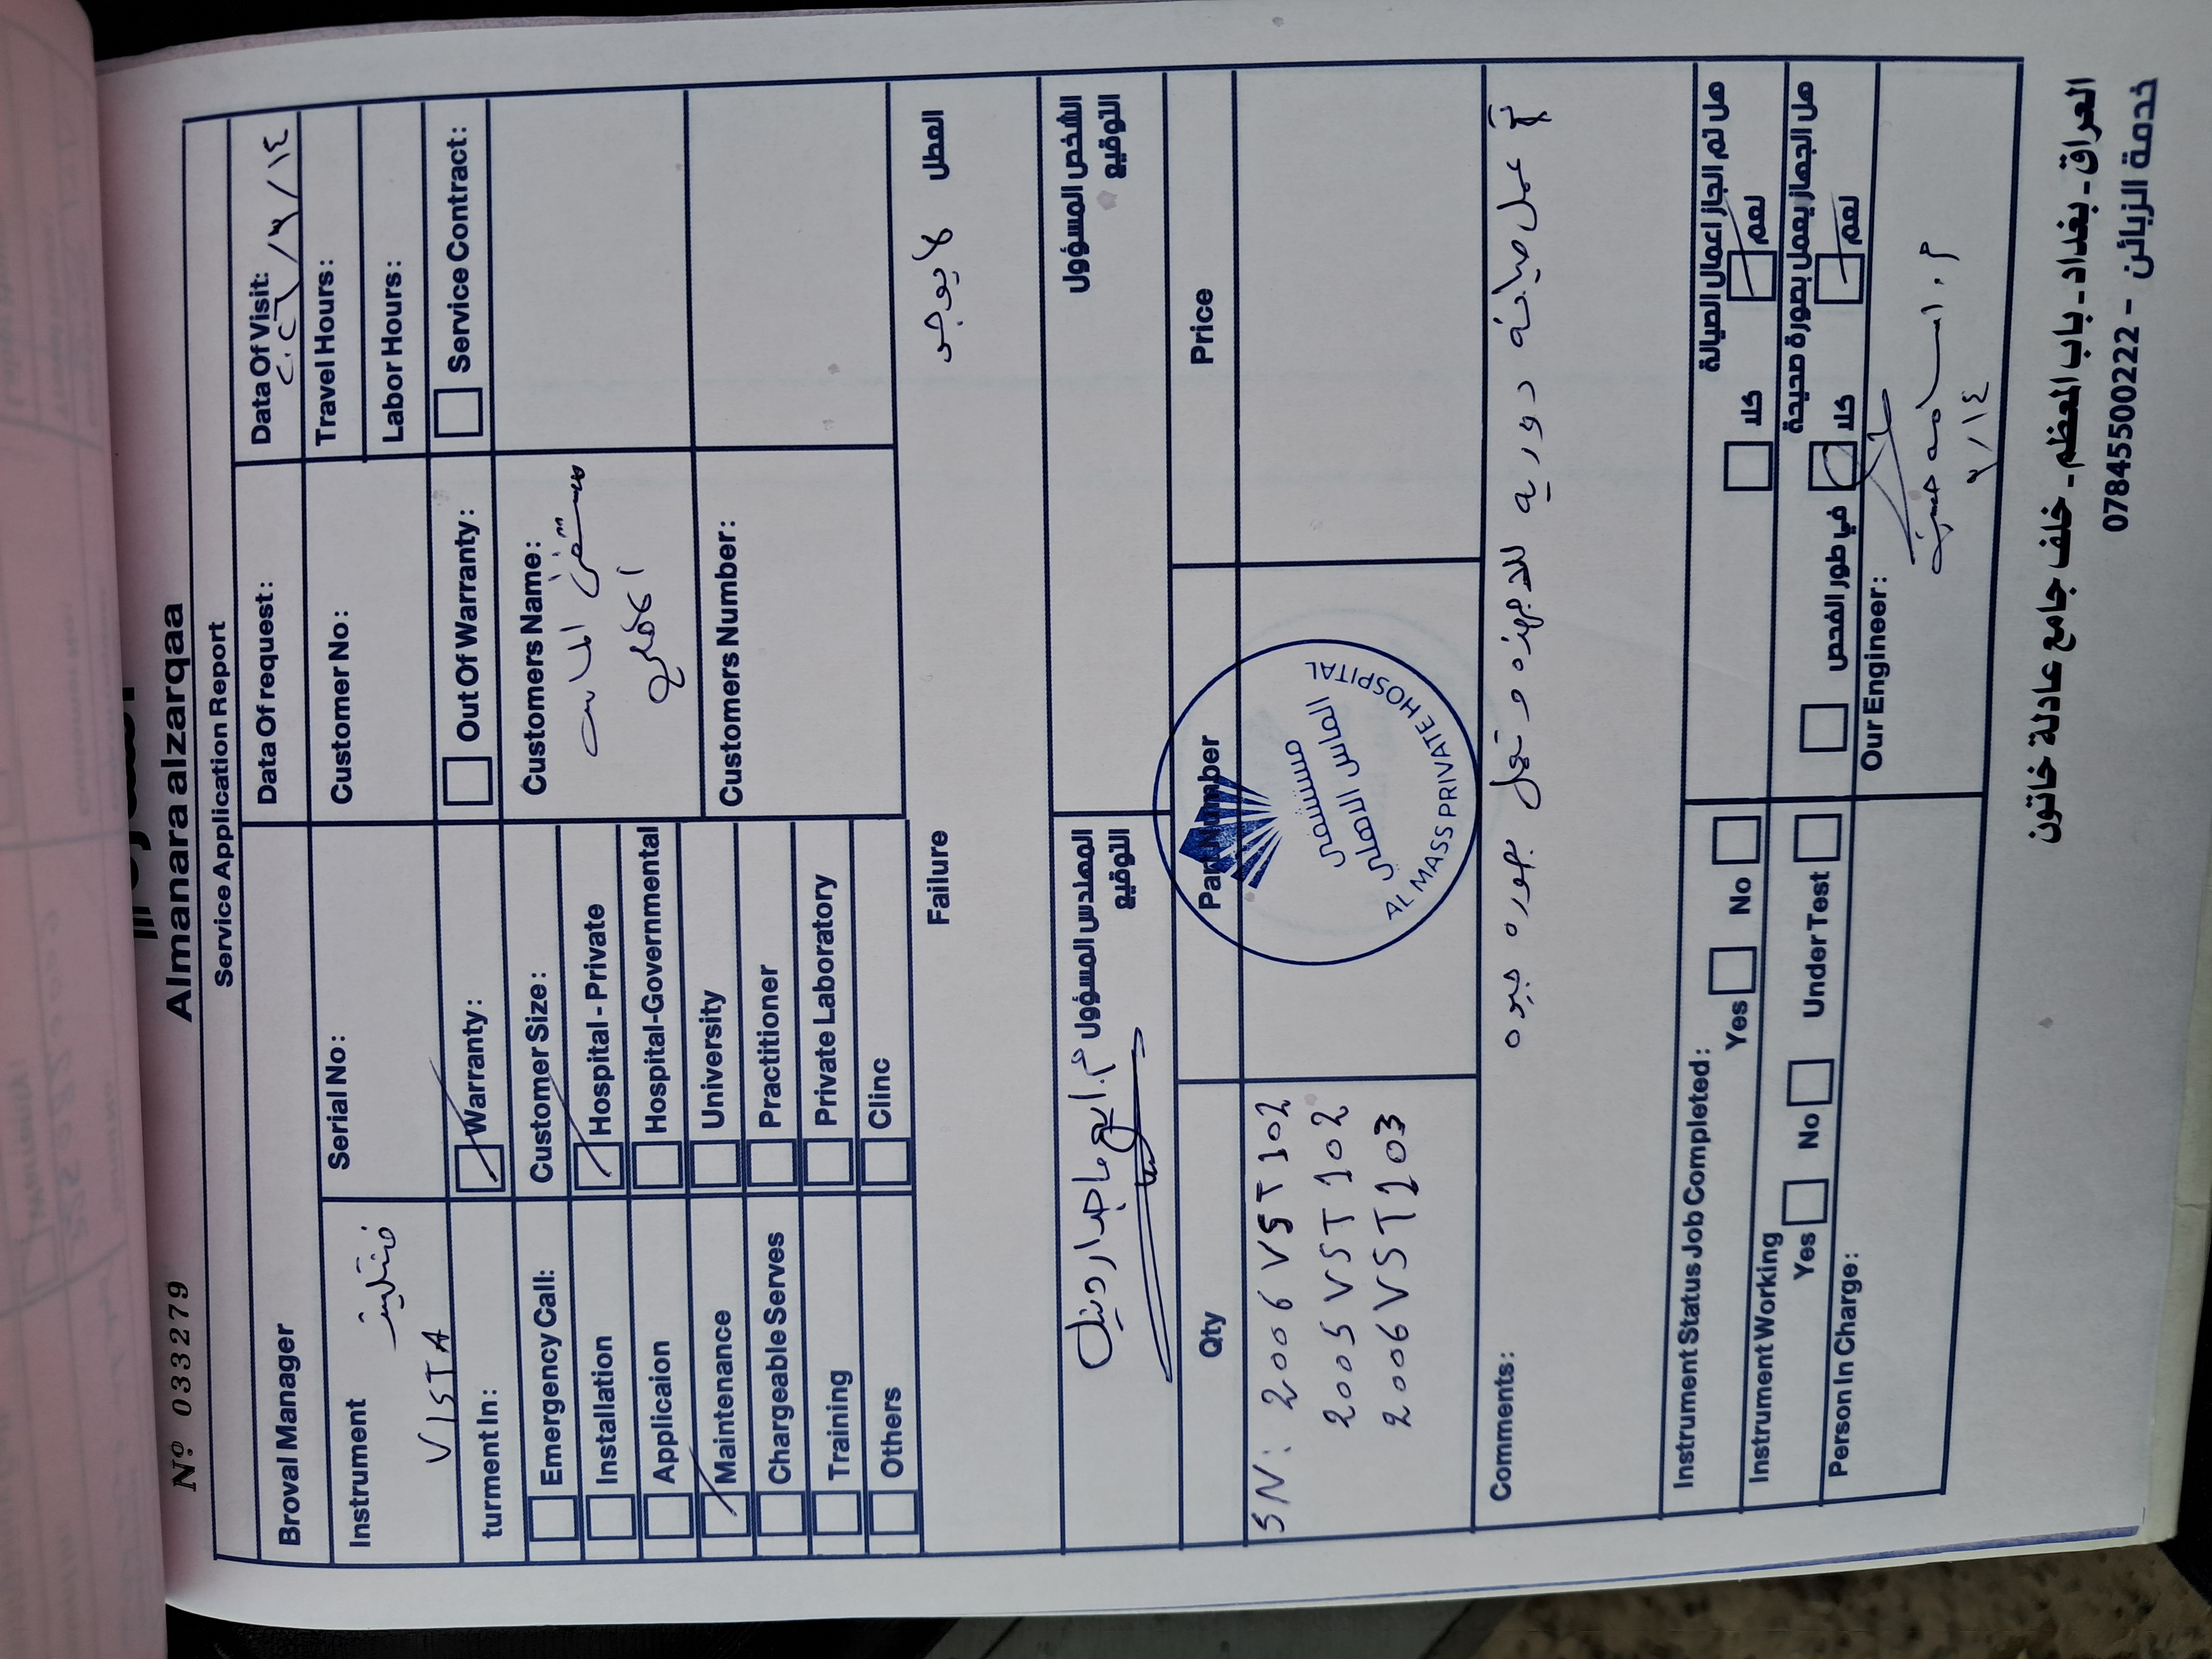 Nº 033279
Almanara alzarqaa
Service Application Report
Broval Manager
Data Of request:
Data Of Visit:
٢٠٢٦/٣/١٤
Instrument
فنتليتر
VISTA
Serial No:
Customer No:
Travel Hours:
Labor Hours:
turment In:
Warranty:
Out Of Warranty:
Service Contract:
Emergency Call:
Installation
Applicaion
Maintenance
Chargeable Serves
Training
Others
Customer Size:
Hospital - Private
Hospital-Governmental
University
Practitioner
Private Laboratory
Clinc
Customers Name:
مستشفى الماس
الاهلي
Customers Number:
Failure
لا يوجد
العطل
المهندس المسؤول
التوقيع
الشخص المسؤول
التوقيع
Qty
Part Number
Price
SN: 2006 VST 102
2005 VST 102
2006 VST 103
مستشفى
الماس الاهلي
AL MASS PRIVATE HOSPITAL
Comments:
تم عمل صيانه دوريه للاجهزه و تعمل بصوره جيده
Instrument Status Job Completed:
Yes
No
هل تم انجاز اعمال الصيانة
كلا
نعم
Instrument Working
Yes
No
Under Test
هل الجهاز يعمل بصورة صحيحة
في طور الفحص
كلا
نعم
Person In Charge:
Our Engineer:
م. اسامه حسين
٣/١٤
العراق - بغداد - باب المعظم - خلف جامع عادلة خاتون
خدمة الزبائن - 07845500222